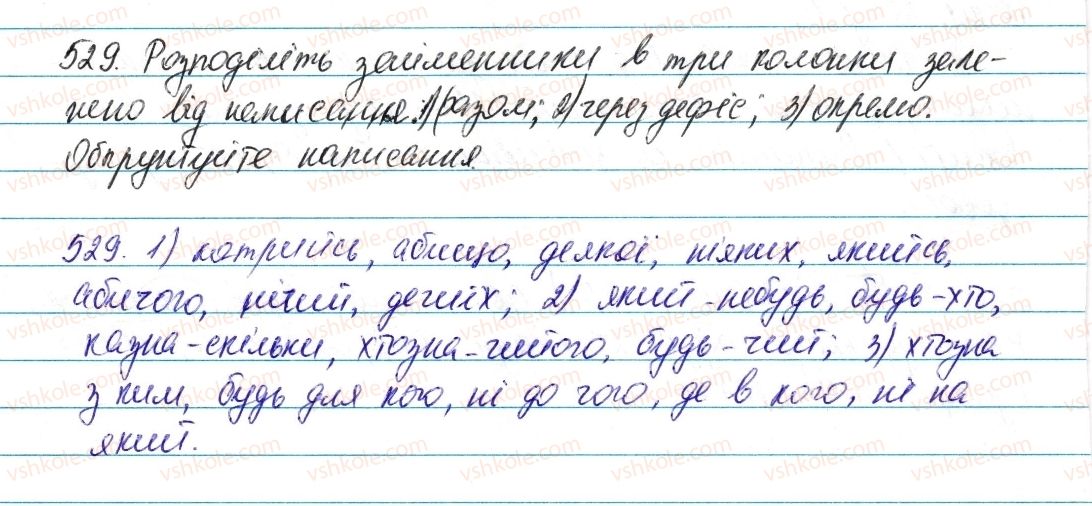 529. Розподіліть займенники в три колонки зале-
жно від написання: 1) разом; 2) через дефіс; 3) окремо.
Обґрунтуйте написання.
529. 1) котрийсь, абищо, деякої, ніяких, якийсь,
абичого, нічий, дечиїх; 2) який-небудь, будь-хто,
казна-скільки, хтозна-чийого, будь-чий; 3) хтозна
з ким, будь для кого, ні до чого, де в кого, ні на
який.